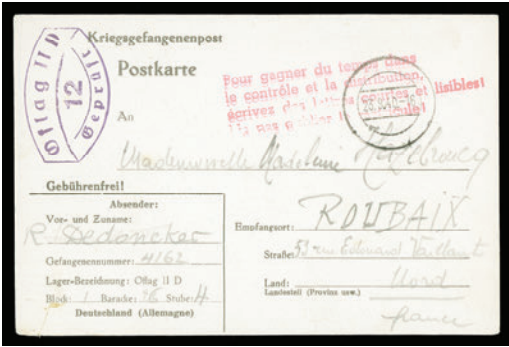 Kriegsgefangenenpost
Postkarte
Oflag II D
12
Geprüft
Pour gagner du temps dans
le contrôle et la distribution,
écrivez des lettres courtes et lisibles!
An
Mademoiselle Madeleine
Gebührenfrei!
Absender:
Vor- und Zuname:
R. Dedoncker
Gefangenennummer: 4162
Lager-Bezeichnung: Oflag II D
Block: 1 Baracke: Stube: 4
Deutschland (Allemagne)
Empfangsort: ROUBAIX
Straße: 53 rue Edouard Vaillant
Land: Nord
Landesteil (Provinz usw.)
france